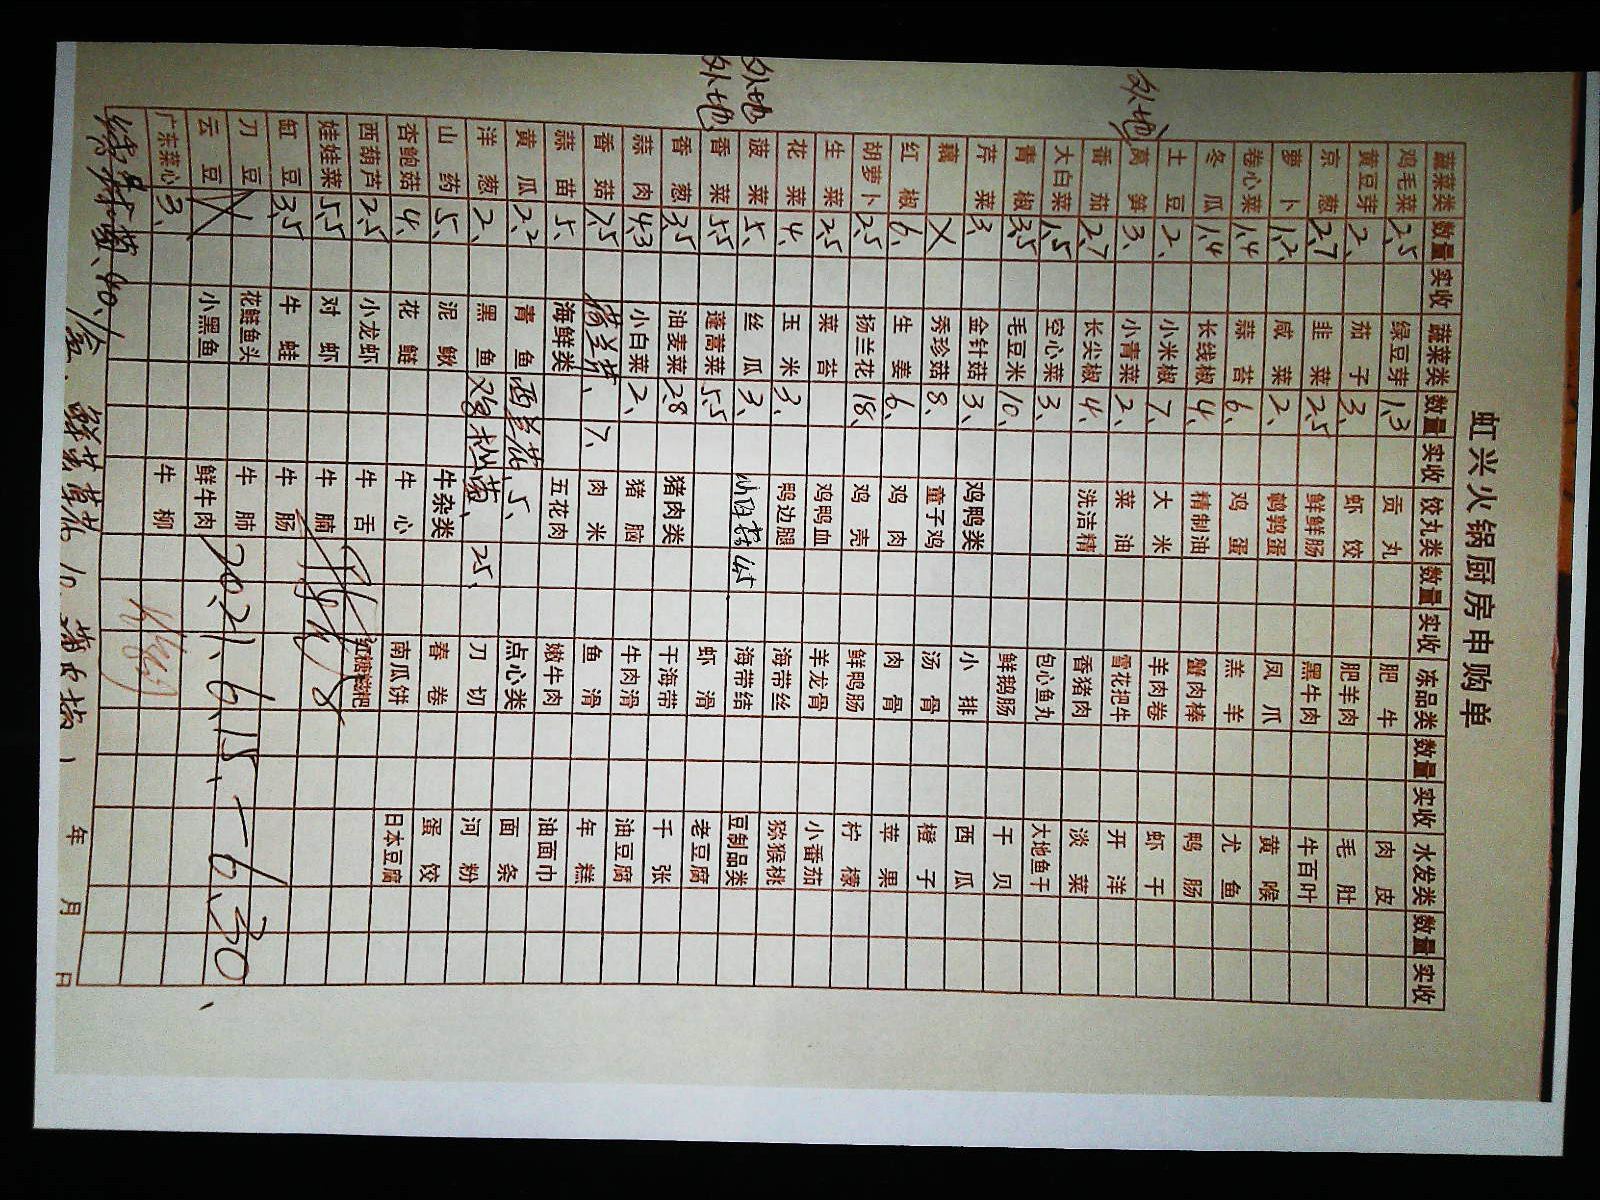 虹兴火锅厨房申购单
蔬菜类 数量 实收 蔬菜类 数量 实收 饺丸类 数量 实收 冻品类 数量 实收 水发类 数量 实收
鸡毛菜 2.5 绿豆芽 1.3 贡丸 肥牛 肉皮
黄豆芽 2、 茄子 3、 虾饺 肥羊肉 毛肚
京葱 2.7 韭菜 2.5 鲜鲜肠 黑牛肉 牛百叶
萝卜 1.2 咸菜 2、 鹌鹑蛋 凤爪 黄喉
卷心菜 1.4 蒜苔 6、 鸡蛋 羔羊 尤鱼
冬瓜 1.4 长线椒 4、 精制油 蟹肉棒 鸭肠
土豆 2、 小米椒 7、 大米 羊肉卷 虾干
外地 莴笋 3、 小青菜 2、 菜油 雪花把牛 开洋
番茄 2.7 长尖椒 4、 洗洁精 香猪肉 淡菜
大白菜 1.5 空心菜 3、 包心鱼丸 大地鱼干
青椒 3.5 毛豆米 10、 鲜鹅肠 干贝
芹菜 3、 金针菇 3、 鸡鸭类 小排 西瓜
藕 X 秀珍菇 8、 童子鸡 汤骨 橙子
红椒 6、 生姜 6、 鸡肉 肉骨 苹果
胡萝卜 2.5 扬兰花 18、 鸡壳 鲜鸭肠 柠檬
生菜 2.5 菜苔 鸡鸭血 羊龙骨 小番茄
花菜 4、 玉米 3、 鸭边腿 海带丝 猕猴桃
外地 菠菜 5、 丝瓜 3、 海带结 豆制品类
外地 香菜 5.5 蓬蒿菜 5.5 虾滑 老豆腐
香葱 3.5 油麦菜 2.8 猪肉类 干海带 千张
蒜肉 4.3 小白菜 2、 猪脑 牛肉滑 油豆腐
香菇 荷兰芹、 7、 肉米 鱼滑 年糕
蒜苗 5、 海鲜类 五花肉 嫩牛肉 油面巾
黄瓜 2.2 青鱼 西兰花、5、 点心类 面条
洋葱 2、 黑鱼 鸡枞菌、25、 刀切 河粉
山药 5、 泥鳅 牛杂类 春卷 蛋饺
杏鲍菇 4、 花鲢 牛心 南瓜饼 日本豆腐
西葫芦 2.5 小龙虾 牛舌 红糖糍粑
娃娃菜 5.5 对虾 牛腩
缸豆 3.5 牛蛙 牛肠
刀豆 X 花鲢鱼头 牛肺
云豆 X 小黑鱼 鲜牛肉 2021、6、15、—6、30、
广东菜心 3、 牛柳
年 月 日